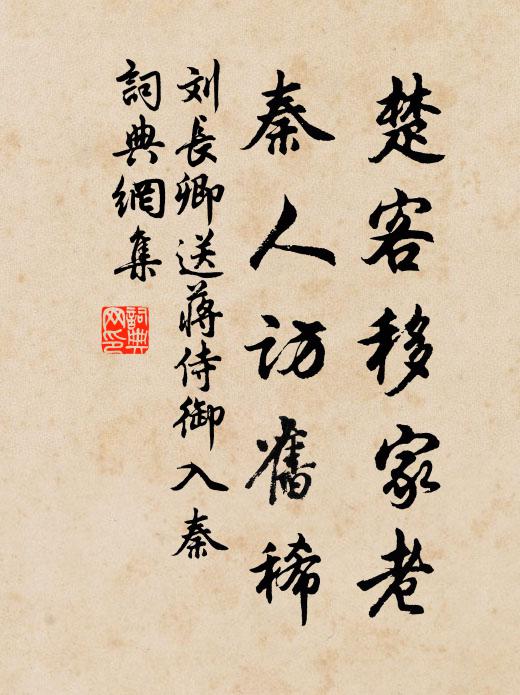 楚客移家老
秦人访舊稀
刘長卿送蒋侍御入秦
詞典網集
詞典
网印